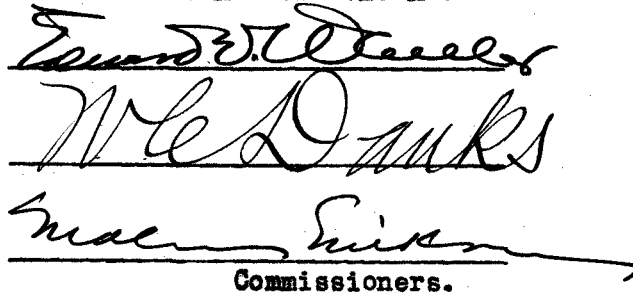 Edward E. Wheeler
W C Danks
Malcolm Erickson
Commissioners.